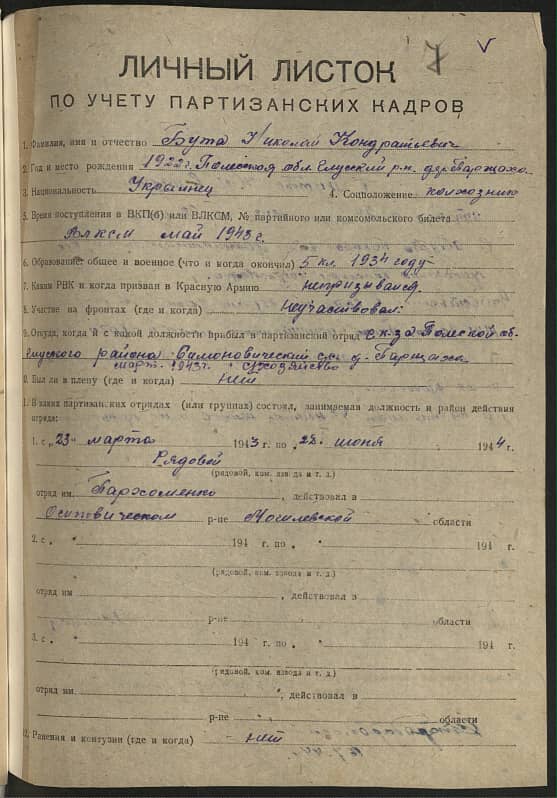 7 V
ЛИЧНЫЙ ЛИСТОК
ПО УЧЕТУ ПАРТИЗАНСКИХ КАДРОВ
1. Фамилия, имя и отчество Бута Николай Кондратьевич
2. Год и место рождения 1922 г. Полесская обл. Елуский р-н. дер. Барщаха
3. Национальность Украинец 4. Соцположение колхозник
5. Время поступления в ВКП(б) или ВЛКСМ, № партийного или комсомольского билета
Влксм май 1943 г.
6. Образование: общее и военное (что и когда окончил) 5 кл. 1934 году
7. Каким РВК и когда призван в Красную Армию непризывался.
8. Участие на фронтах (где и когда) Неучаствовал.
9. Откуда, когда и с какой должности прибыл в партизанский отряд с к-за Полесской об.
Елуского района Симоновический с/с д. Барщаха
март. 1943 г. с/хозяйство
0. Был ли в плену (где и когда) нет
1. В каких партизанских отрядах (или группах) состоял, занимаемая должность и район действия
отряда:
1. с „23" марта 1943 г. по „22" июня 1944 г.
Рядовой
(рядовой, ком. взвода и т. д.)
отряд им. Пархоменко , действовал в
Осиповическом р-не Могилевской области
2. с „ " 194 г. по „ " 194 г.
(рядовой, ком. взвода и т. д.)
отряд им , действовал в
р-не области
3. с „ " 194 г. по „ " 194 г.
(рядовой, ком. взвода и т. д.)
отряд им. , действовал в
р-не области
2. Ранения и контузии (где и когда) нет